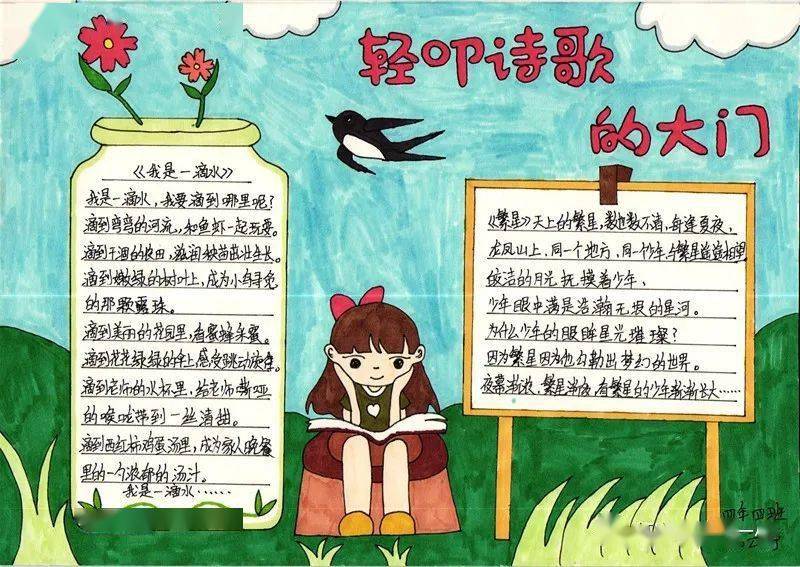 轻叩诗歌
的大门
《我是一滴水》
我是一滴水，我要滴到哪里呢？
滴到弯弯的河流，和鱼虾一起玩耍。
滴到干涸的农田，滋润秧苗茁壮生长。
滴到嫩绿的树叶上，成为小鸟寻觅
的那颗露珠。
滴到美丽的花园里，看蜜蜂采蜜。
滴到花花绿绿的伞上，感受跳动旋律。
滴到老师的水杯里，给老师嘶哑
的喉咙带到一丝清甜。
滴到西红柿鸡蛋汤里，成为家人晚餐
里的一个浓郁的汤汁。
我是一滴水……
《繁星》天上的繁星，数也数不清，每逢夏夜，
龙凤山上，同一个地方，同一个少年与繁星遥遥相望
皎洁的月光抚摸着少年、
少年眼中满是浩瀚无垠的星河。
为什么少年的眼眸星光璀璨？
因为繁星因为他勾勒出梦幻的世界。
夜幕渐收，繁星渐夜，看繁星的少年渐渐长大……
四年四班